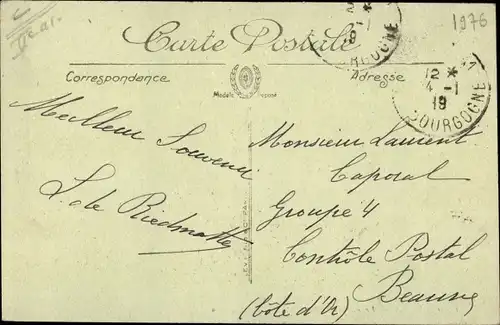 1976
Carte Postale
Correspondance
Adresse
Modèle
déposé
12 *
4 -1
19
BOURGOGNE
-1
19
Meilleur Souvenir
L. de Riedmatten
Monsieur Laurent
Caporal
Groupe 4
Contrôle Postal
Beaune
(Côte d'Or)